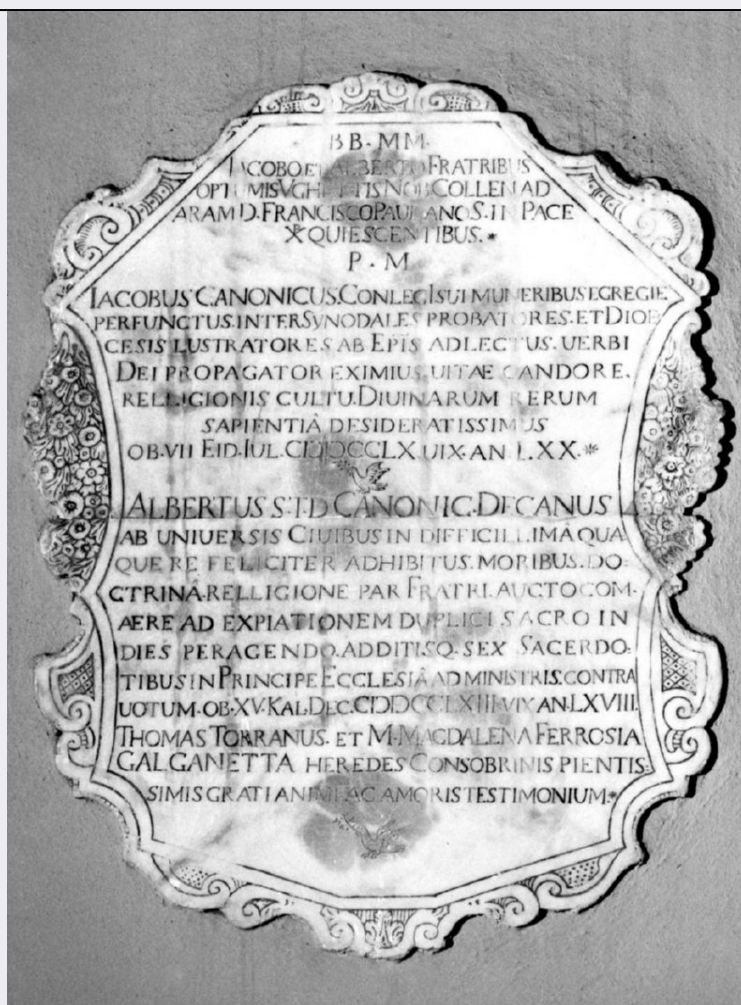 BB·MM·
IACOBO ET ALBERTO FRATRIBUS
OPTUMIS VGHETTIS NOB·COLLEN AD
ARAM D. FRANCISCO PAULANO S· IN PACE
QUIESCENTIBUS.
P·M
IACOBUS CANONICUS. CONLEGI SUI MUNERIBUS EGREGIE
PERFUNCTUS. INTER SYNODALES PROBATORES. ET DIOE
CESIS LUSTRATORES AB EPIS ADLECTUS. UERBI
DEI PROPAGATOR EXIMIUS. UITAE CANDORE.
RELLIGIONIS CULTU. DIUINARUM RERUM
SAPIENTIÂ DESIDERATISSIMUS
OB·VII EID·IUL. CIƆIƆCCLX UIX·AN LXX.
ALBERTUS S·T·D CANONIC·DECANUS
AB UNIUERSIS CIUIBUS IN DIFFICILLIMÂ QUA
QUE RE FELICITER ADHIBITUS. MORIBUS. DO
CTRINÂ. RELLIGIONE PAR FRATRI. AUCTO COM·
AERE AD EXPIATIONEM DUPLICI SACRO IN
DIES PERAGENDO. ADDITISQ· SEX SACERDO:
TIBUS IN PRINCIPE ECCLESIÂ ADMINISTRIS. CONTRA
UOTUM. OB·XV·KAL·DEC. CIƆIƆCCLXIII VIX AN·LXVIII.
THOMAS TORRANUS· ET M·MAGDALENA FERROSIA
GALGANETTA HEREDES CONSOBRINIS PIENTIS:
SIMIS GRATI ANIMI AC AMORIS TESTIMONIUM.